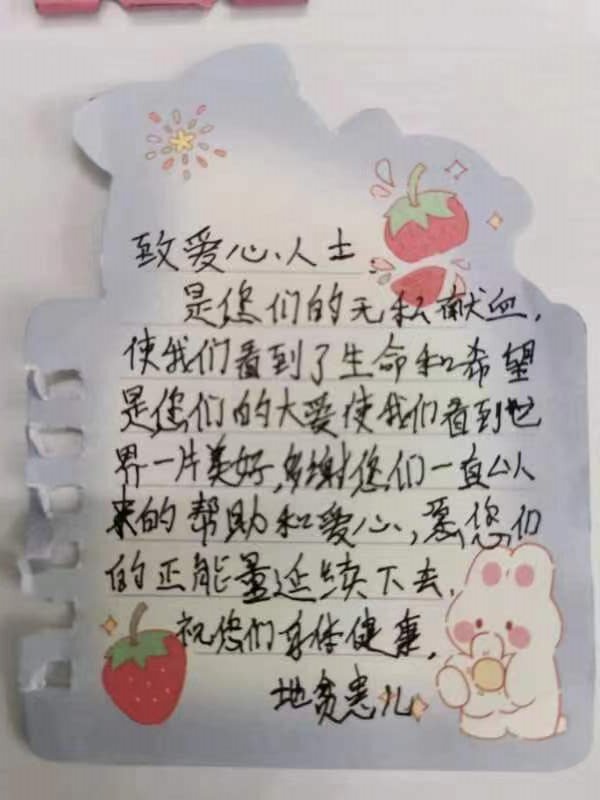 致爱心人士
是您们的无私献血,
使我们看到了生命和希望
是您们的大爱使我们看到世
界一片美好,多谢您们一直以
来的帮助和爱心,愿您们
的正能量延续下去,
祝您们身体健康,
地贫患儿